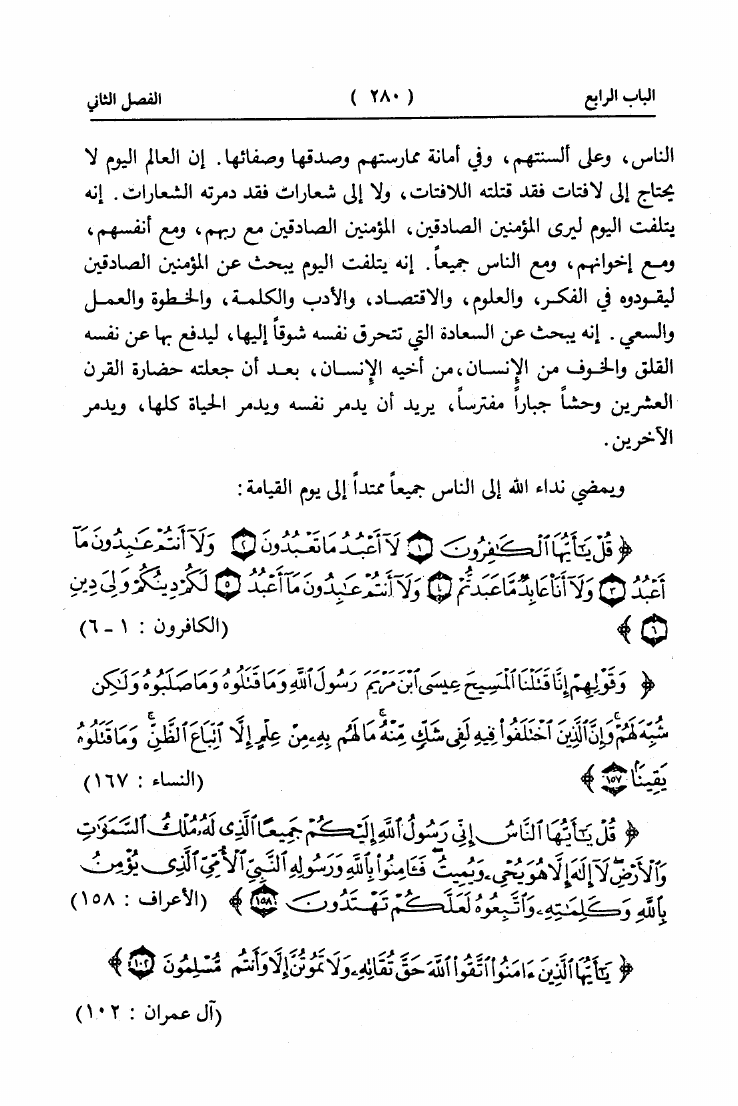 الباب الرابع ( ٢٨٠ ) الفصل الثاني
الناس، وعلى ألسنتهم، وفي أمانة ممارستهم وصدقها وصفائها. إن العالم اليوم لا
يحتاج إلى لافتات فقد قتلته اللافتات، ولا إلى شعارات فقد دمرته الشعارات. إنه
يتلفت اليوم ليرى المؤمنين الصادقين، المؤمنين الصادقين مع ربهم، ومع أنفسهم،
ومع إخوانهم، ومع الناس جميعاً. إنه يتلفت اليوم يبحث عن المؤمنين الصادقين
ليقودوه في الفكر، والعلوم، والاقتصاد، والأدب والكلمة، والخطوة والعمل
والسعي. إنه يبحث عن السعادة التي تتحرق نفسه شوقاً إليها، ليدفع بها عن نفسه
القلق والخوف من الإنسان، من أخيه الإنسان، بعد أن جعلته حضارة القرن
العشرين وحشاً جباراً مفترساً، يريد أن يدمر نفسه ويدمر الحياة كلها، ويدمر
الآخرين.
ويمضي نداء الله إلى الناس جميعاً ممتداً إلى يوم القيامة:
﴿ قُلْ يَٰٓأَيُّهَا ٱلْكَٰفِرُونَ ١ لَآ أَعْبُدُ مَا تَعْبُدُونَ ٢ وَلَآ أَنتُمْ عَٰبِدُونَ مَآ
أَعْبُدُ ٣ وَلَآ أَنَا۠ عَابِدٌ مَّا عَبَدتُّمْ ٤ وَلَآ أَنتُمْ عَٰبِدُونَ مَآ أَعْبُدُ ٥ لَكُمْ دِينُكُمْ وَلِيَ دِينِ
٦ ﴾ (الكافرون : ١ - ٦)
﴿ وَقَوْلِهِمْ إِنَّا قَتَلْنَا ٱلْمَسِيحَ عِيسَى ٱبْنَ مَرْيَمَ رَسُولَ ٱللَّهِ وَمَا قَتَلُوهُ وَمَا صَلَبُوهُ وَلَٰكِن
شُبِّهَ لَهُمْ ۚ وَإِنَّ ٱلَّذِينَ ٱخْتَلَفُوا۟ فِيهِ لَفِى شَكٍّ مِّنْهُ ۚ مَا لَهُم بِهِۦ مِنْ عِلْمٍ إِلَّا ٱتِّبَاعَ ٱلظَّنِّ ۚ وَمَا قَتَلُوهُ
يَقِينًۢا ١٥٧ ﴾ (النساء : ١٦٧)
﴿ قُلْ يَٰٓأَيُّهَا ٱلنَّاسُ إِنِّى رَسُولُ ٱللَّهِ إِلَيْكُمْ جَمِيعًا ٱلَّذِى لَهُۥ مُلْكُ ٱلسَّمَٰوَٰتِ
وَٱلْأَرْضِ ۖ لَآ إِلَٰهَ إِلَّا هُوَ يُحْىِۦ وَيُمِيتُ ۖ فَـَٔامِنُوا۟ بِٱللَّهِ وَرَسُولِهِ ٱلنَّبِىِّ ٱلْأُمِّىِّ ٱلَّذِى يُؤْمِنُ
بِٱللَّهِ وَكَلِمَٰتِهِۦ وَٱتَّبِعُوهُ لَعَلَّكُمْ تَهْتَدُونَ ١٥٨ ﴾ (الأعراف : ١٥٨)
﴿ يَٰٓأَيُّهَا ٱلَّذِينَ ءَامَنُوا۟ ٱتَّقُوا۟ ٱللَّهَ حَقَّ تُقَاتِهِۦ وَلَا تَمُوتُنَّ إِلَّا وَأَنتُم مُّسْلِمُونَ ١٠٢ ﴾
(آل عمران : ١٠٢)